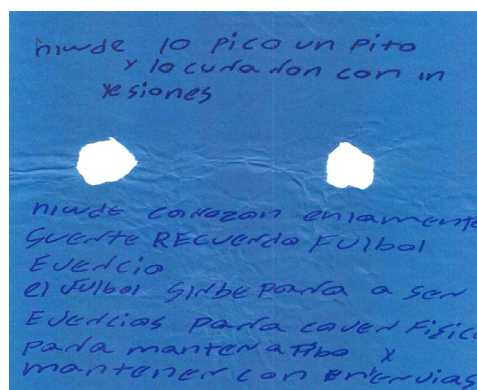 niude lo pico un pito
y lo cura ron con in
yesiones
niude corazon en la mente
Suerte RECUERdo FUlbol
EJercio
el FUlbol sirbe para a ser
EJercios para cover Fisico
para mantener atibo y
mantener con enerjias